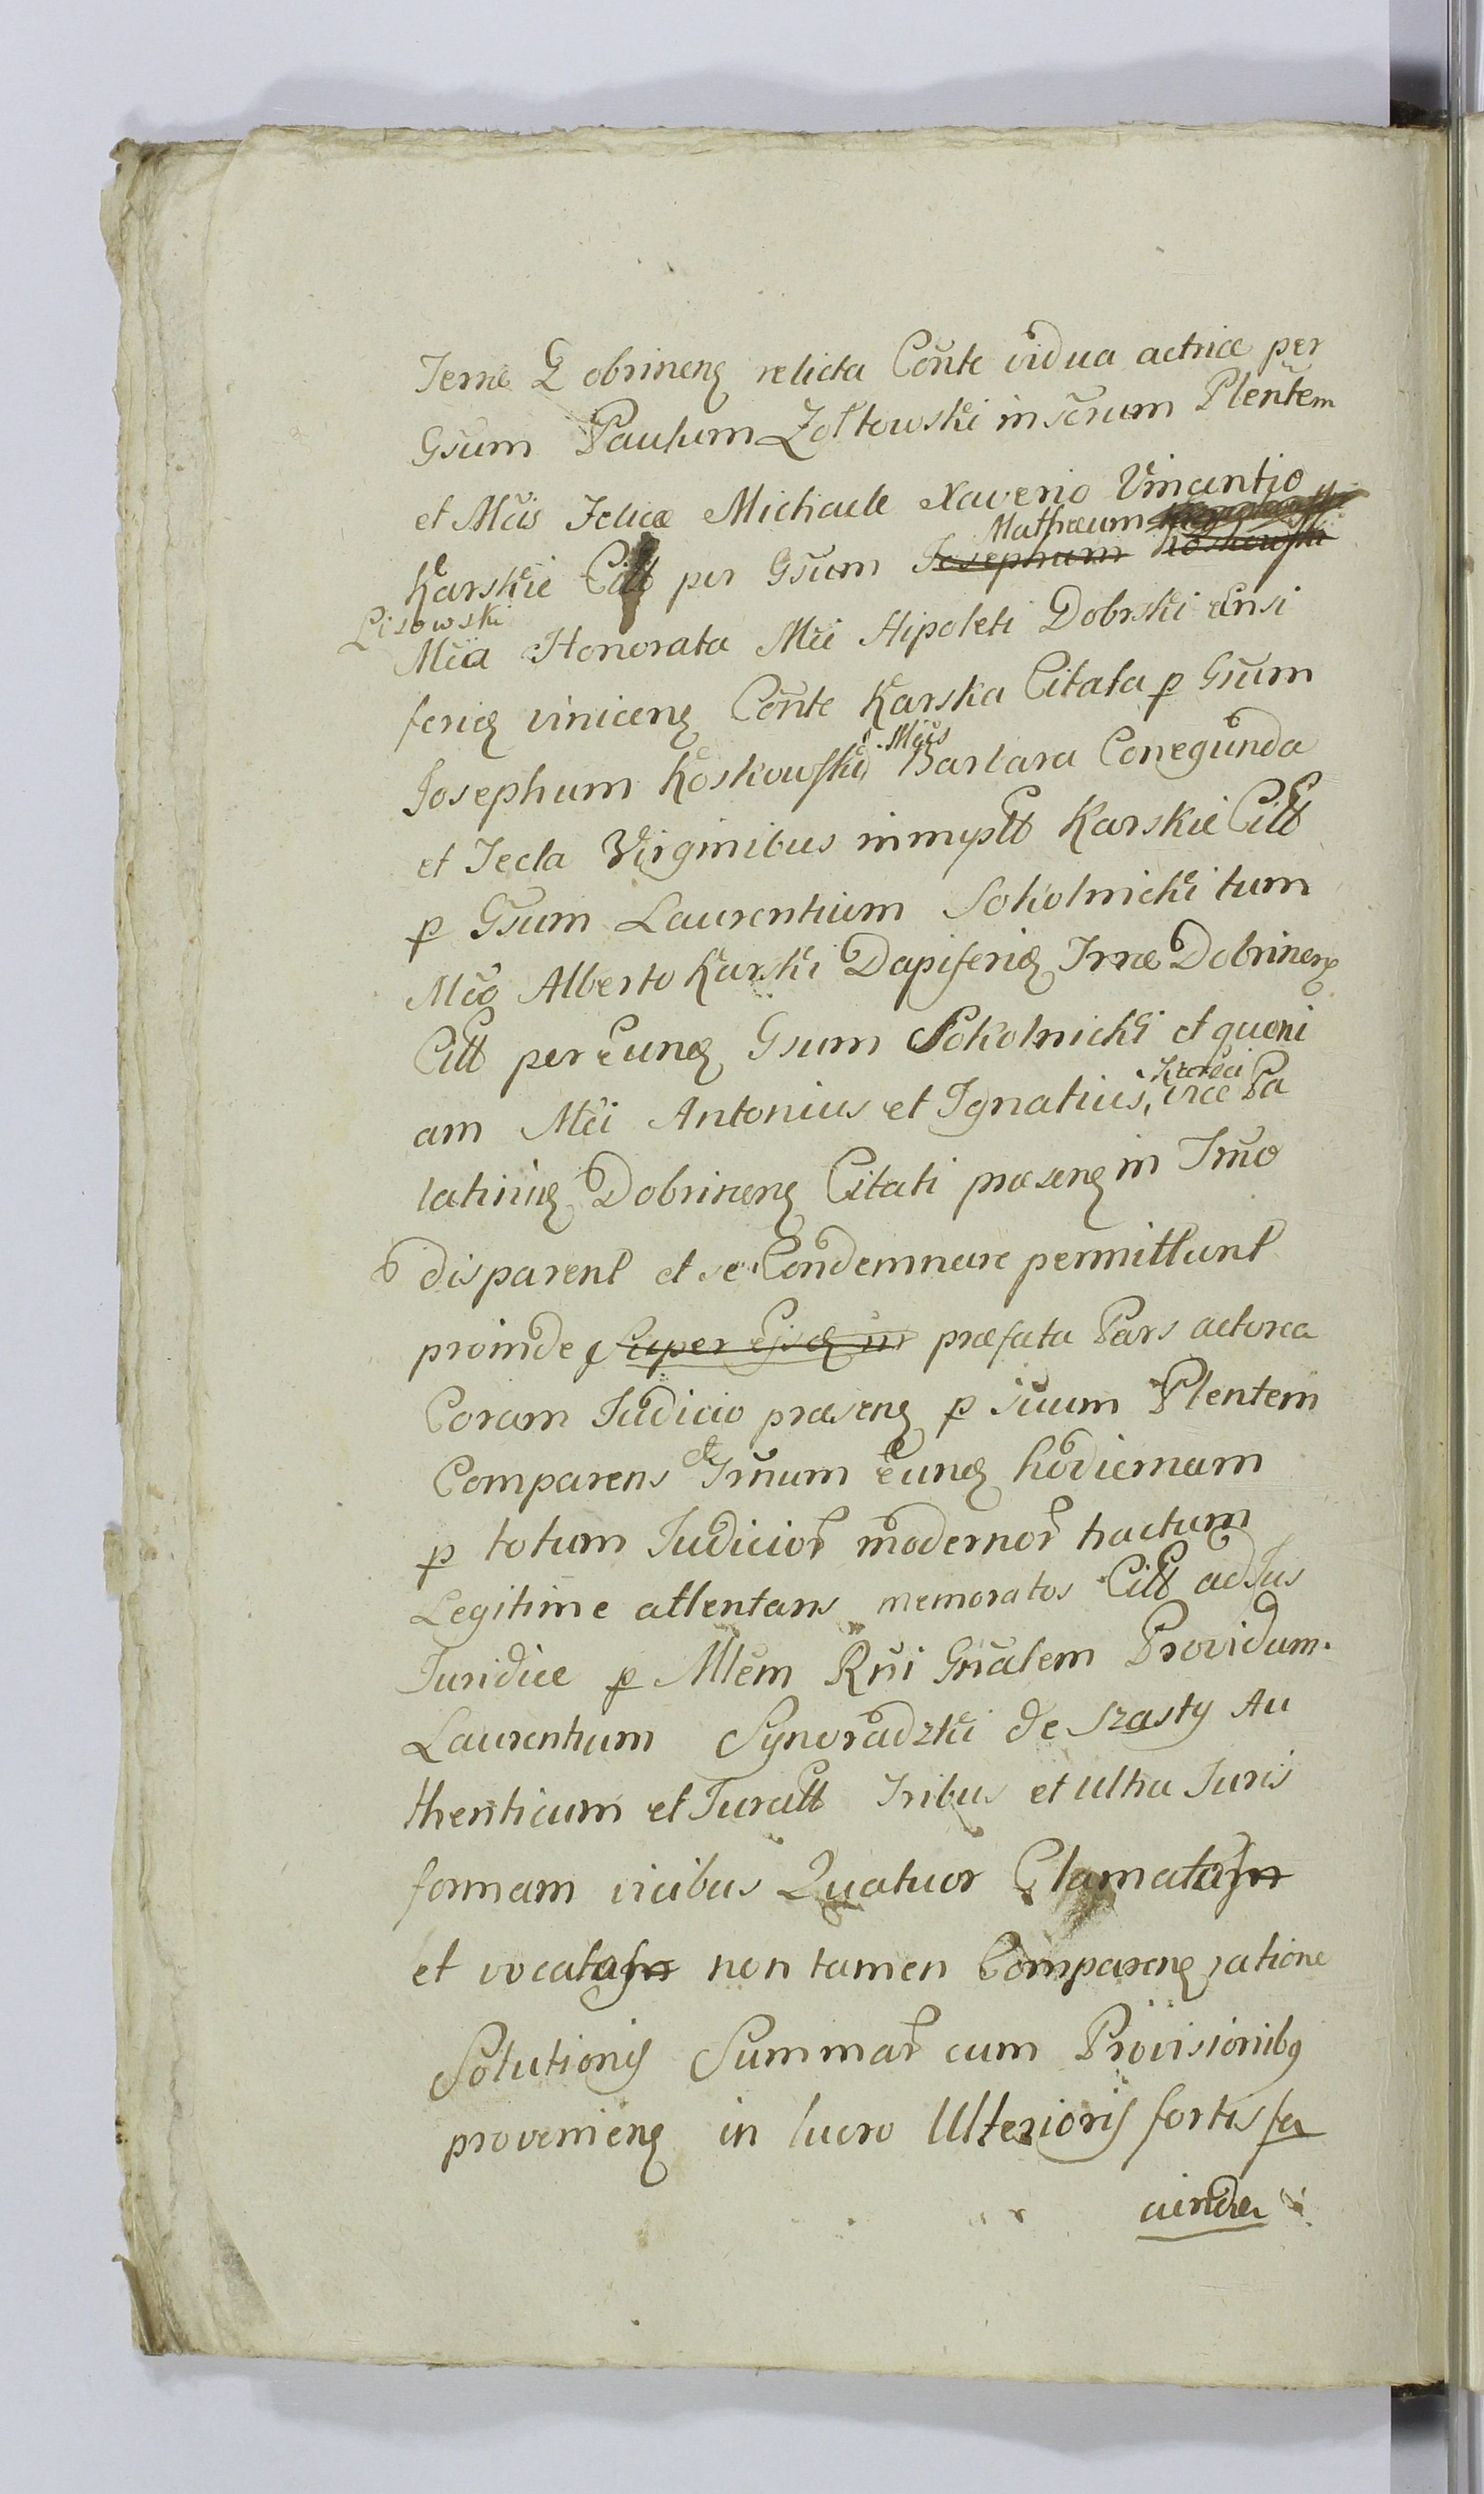 Terræ Dobrinens relicta Coñte vidua actrice per
Gsum Paulum Żołtowski in scrum Pleñtem
et Mcis Felice Michaele Xaverio Vincentio
Matheum
Karskie Citt per Gsum Josephum Koskowski
Lisowski
Mcia Honorata Mci Hipoleti Dobrski Ensi
feri Vinicens Coñte Karska Citata p Gsum
Mcis
Josephum Koskowski Barbara Conegunda
et Tecla Virginibus innuptt Karskie Citt
p Gsum Laurentium Sokolnicki tum
Mco Alberto Karski Dapiferid Trræ Dobrinens
Citt per eund Gsum Sokolnicki et quoni
am Mci Antonius et Ignatius, vice Pa
latinid Dobrinens Citati præsens in Trno
disparent et se Condemnare permittunt
proinde super ejsd in præfata Pars actorea
Coram Judicio præsens p suum Plentem
Comparens et Trñum eund hodiernum
p totum Judicior modernor tractum
Legitime attentans memoratos Citt ad Jus
Juridice p Mlem Rñi Gñalem Providum
Laurentium Synoradzki de Szasty Au
thenticum et Juratt Tribus et ultra Juris
formam vicibus Quatuor Clamatos
et vocatos non tamen Comparens ratione
Solutionis Summar cum Provisionibus
proveniens in lucro Ulterioris sortis fa
ciendæ